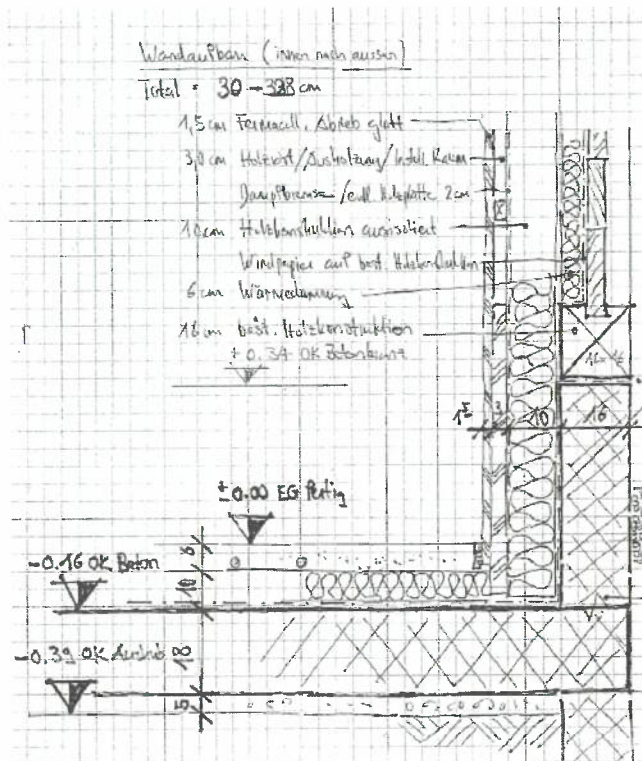 Wandaufbau (innen nach aussen)
Total = 30 - 328 cm
1,5 cm Fermacell, Abrieb glatt
3,0 cm Holzrost / Ausholzung / Install. Raum
Dampfbremse / evtl. Holzplatte 2cm
10 cm Holzkonstruktion ausisoliert
Windpapier auf best. Holzkonstruktion
6 cm Wärmedämmung
16 cm best. Holzkonstruktion
+ 0.34 OK
1⁵ 3 10 16
±0.00 EG fertig
6
-0.16 OK Beton
10
-0.39 OK Aushub
18
5